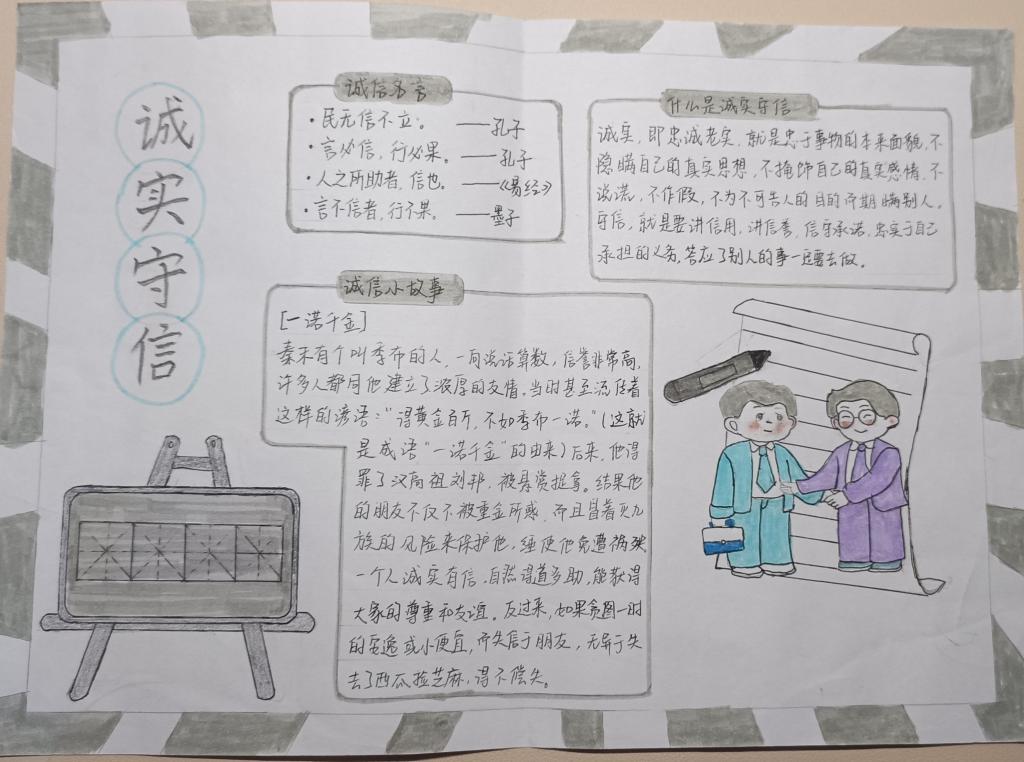 诚实守信
诚信名言
·民无信不立。 ——孔子
·言必信，行必果。 ——孔子
·人之所助者，信也。 ——《易经》
·言不信者，行不果。 ——墨子
什么是诚实守信
诚实，即忠诚老实，就是忠于事物的本来面貌，不
隐瞒自己的真实思想，不掩饰自己的真实感情，不
说谎，不作假，不为不可告人的目的而欺瞒别人。
守信，就是要讲信用，讲信誉，信守承诺，忠实于自己
承担的义务，答应了别人的事一定要去做。
诚信小故事
[一诺千金]
秦末有个叫季布的人，一向说话算数，信誉非常高，
许多人都同他建立了浓厚的友情。当时甚至流传着
这样的谚语：“得黄金百斤，不如季布一诺。”（这就
是成语“一诺千金”的由来）后来，他得
罪了汉高祖刘邦，被悬赏捉拿。结果他
的朋友不仅不被重金所惑，而且冒着灭九
族的风险来保护他，使他免遭祸殃
一个人诚实有信，自然得道多助，能获得
大家的尊重和友谊。反过来，如果贪图一时
的安逸或小便宜，而失信于朋友，无异于失
去了西瓜捡芝麻，得不偿失。